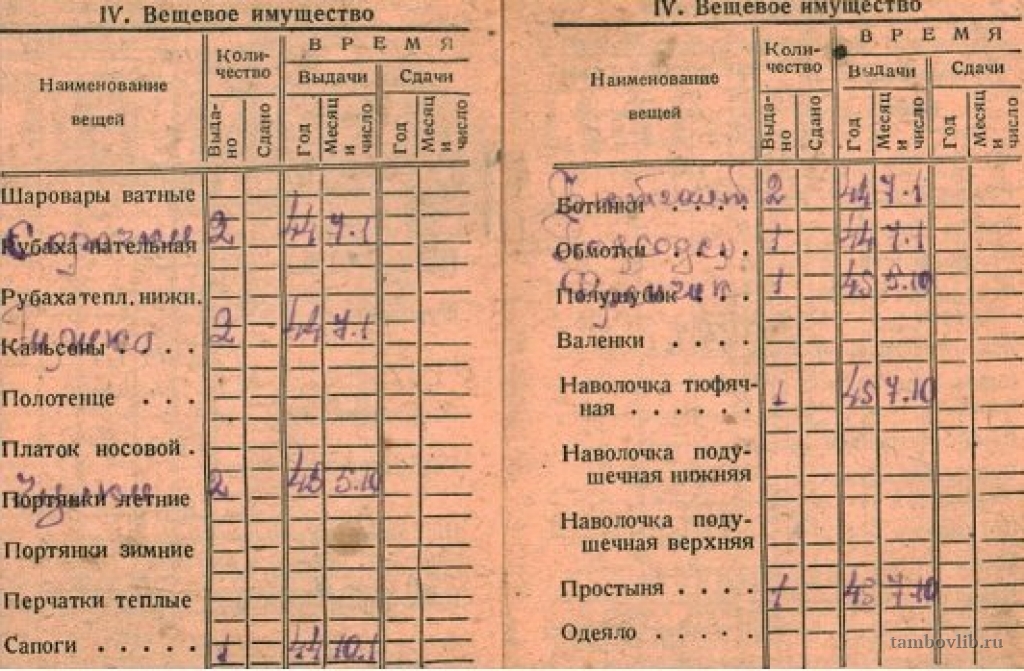 IV. Вещевое имущество
Наименование вещей
Количество
ВРЕМЯ
Выдачи
Сдачи
Выдано
Сдано
Год
Месяц и число
Год
Месяц и число
Шаровары ватные
Сорочки 2 44 7.1
Рубаха нательная
Рубаха тепл. нижн.
2 44 7.1
Кальсоны . . . .
Полотенце . . .
Платок носовой .
Чулки 2 45 5.10
Портянки летние
Портянки зимние
Перчатки теплые
Сапоги . . . . . 1 44 10.1
IV. Вещевое имущество
Наименование вещей
Количество
ВРЕМЯ
Выдачи
Сдачи
Выдано
Сдано
Год
Месяц и число
Год
Месяц и число
Ботинки . . . . 2 44 7.1
Обмотки . . . . 1 44 7.1
Полушубок . . . 1 45 5.10
Валенки . . . .
Наволочка тюфяч-
ная . . . . . . 1 45 7.10
Наволочка поду-
шечная нижняя
Наволочка поду-
шечная верхняя
Простыня . . . . 1 45 7.10
Одеяло . . . . .
tambovlib.ru